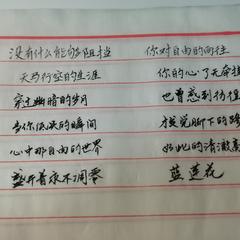 没有什么能够阻挡 你对自由的向往
天马行空的生涯 你的心了无牵
穿过幽暗的岁月 也曾感到彷徨
当你低头的瞬间 才觉脚下的路
心中那自由的世界 如此的清澈高
盛开着永不凋零 蓝莲花